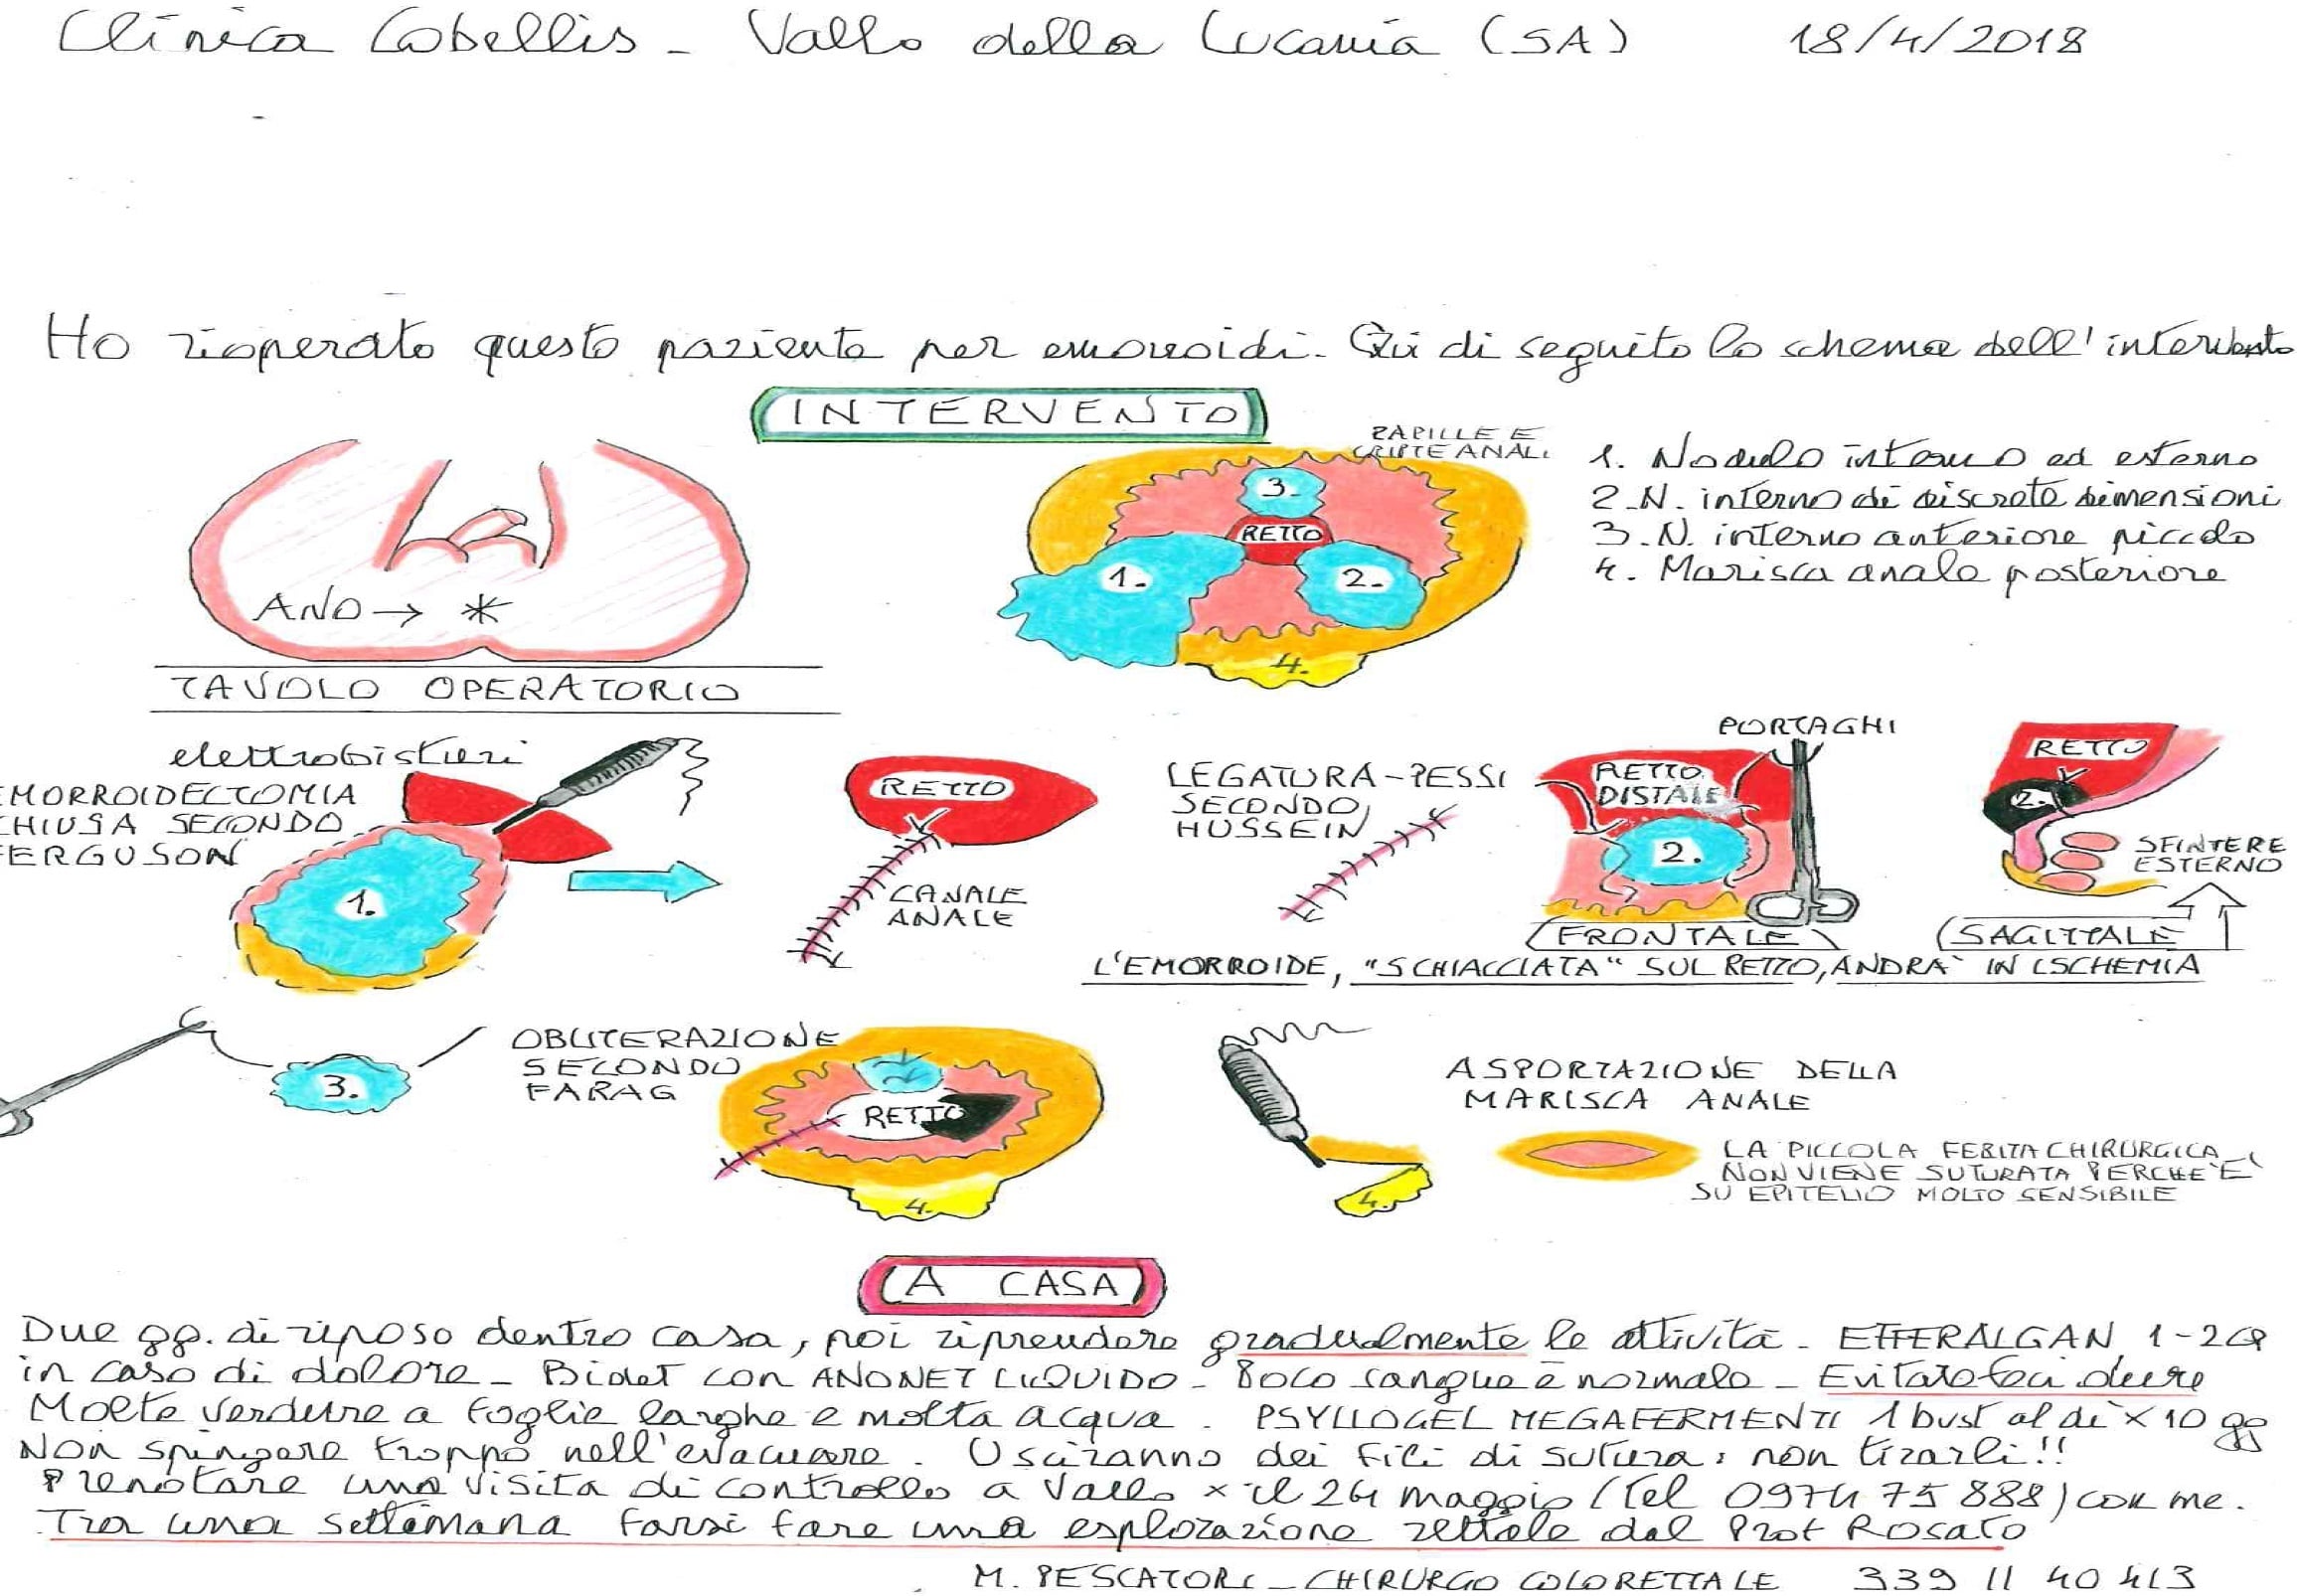 Clinica Cobellis - Vallo della Lucania (SA) 18/4/2018
Ho rioperato questo paziente per emorroidi. Qui di seguito lo schema dell'intervento
INTERVENTO
PAPILLE E
CRIPTE ANALI
1. Nodulo interno ed esterno
2. N. interno di discrete dimensioni
3. N. interno anteriore piccolo
4. Marisca anale posteriore
3.
RETTO
1.
2.
4.
ANO → *
TAVOLO OPERATORIO
elettrobisturi
EMORROIDECTOMIA
CHIUSA SECONDO
FERGUSON
1.
RETTO
CANALE
ANALE
LEGATURA-PESSI
SECONDO
HUSSEIN
PORTAGHI
RETTO
DISTALE
2.
FRONTALE
RETTO
2.
SFINTERE
ESTERNO
SAGITTALE
L'EMORROIDE, "SCHIACCIATA" SUL RETTO, ANDRA' IN ISCHEMIA
3.
OBLITERAZIONE
SECONDO
FARAG
RETTO
4.
ASPORTAZIONE DELLA
MARISCA ANALE
4.
LA PICCOLA FERITA CHIRURGICA
NON VIENE SUTURATA PERCHE' E'
SU EPITELIO MOLTO SENSIBILE
A CASA
Due gg. di riposo dentro casa, poi riprendere gradualmente le attività - EFFERALGAN 1-2 cp
in caso di dolore - Bidet con ANONET LIQUIDO - Poco sangue è normale - Evitare feci dure
Molte verdure a foglie larghe e molta acqua. PSYLLOGEL MEGAFERMENTI 1 bust al dì x 10 gg
Non spingere troppo nell'evacuare. Usciranno dei fili di sutura: non tirarli!!
Prenotare una visita di controllo a Vallo x il 24 maggio (Tel 0974 75 888) con me.
Tra una settimana farsi fare una esplorazione rettale dal Prof Rosato
M. PESCATORI - CHIRURGO COLORETTALE 339 11 40 413